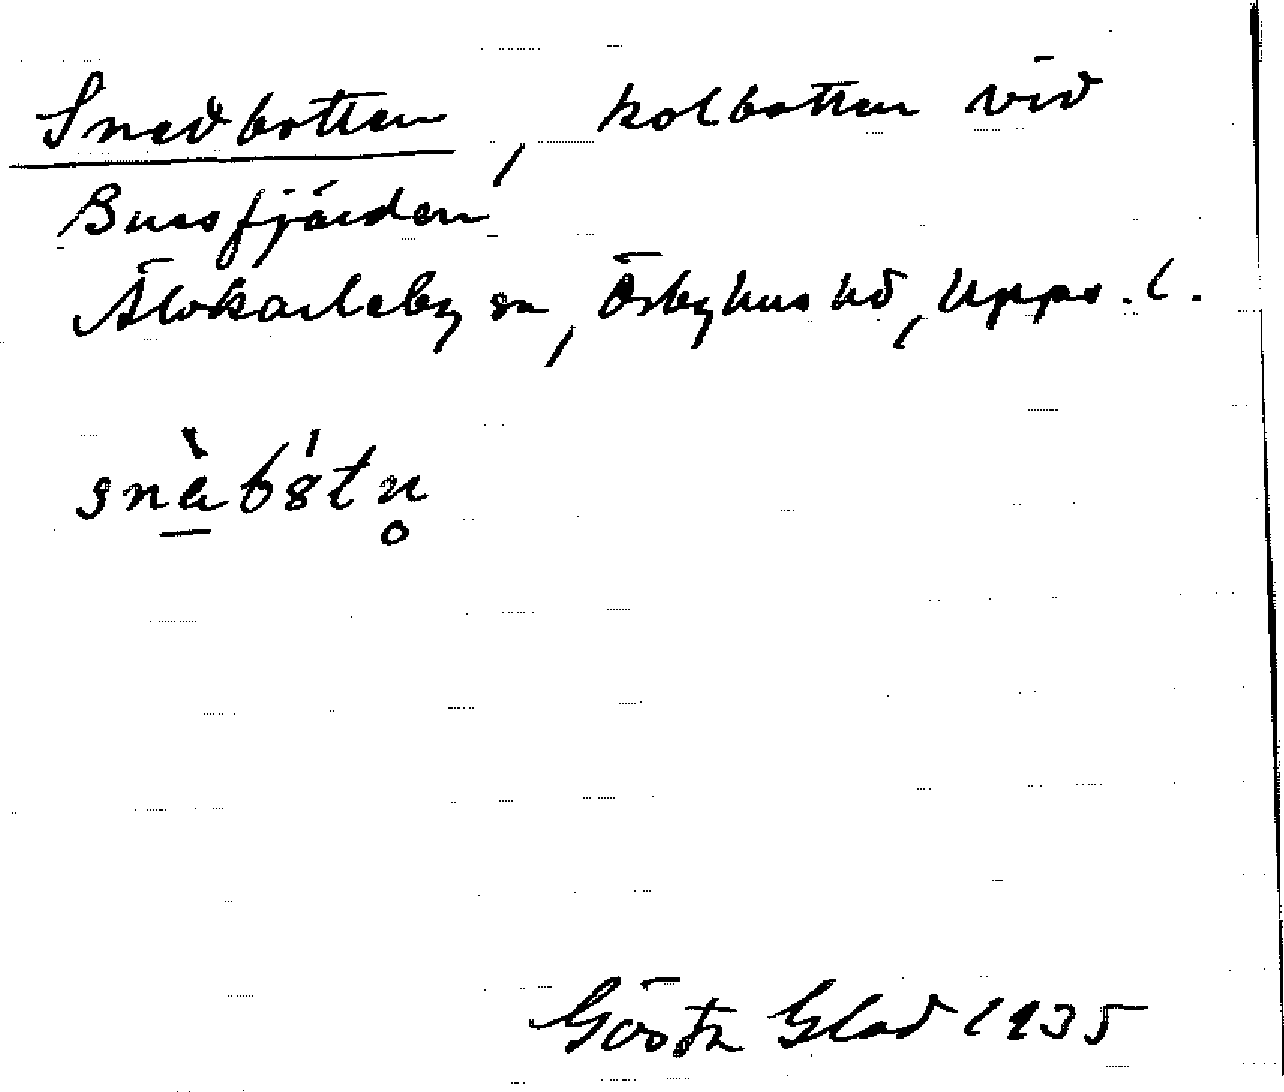 Snedbotten, kolbotten vid
Bussfjärden
Älvkarleby sn, Örbyhus hd, Upps. l.
snàbötn̥
Gösta Glad 1935